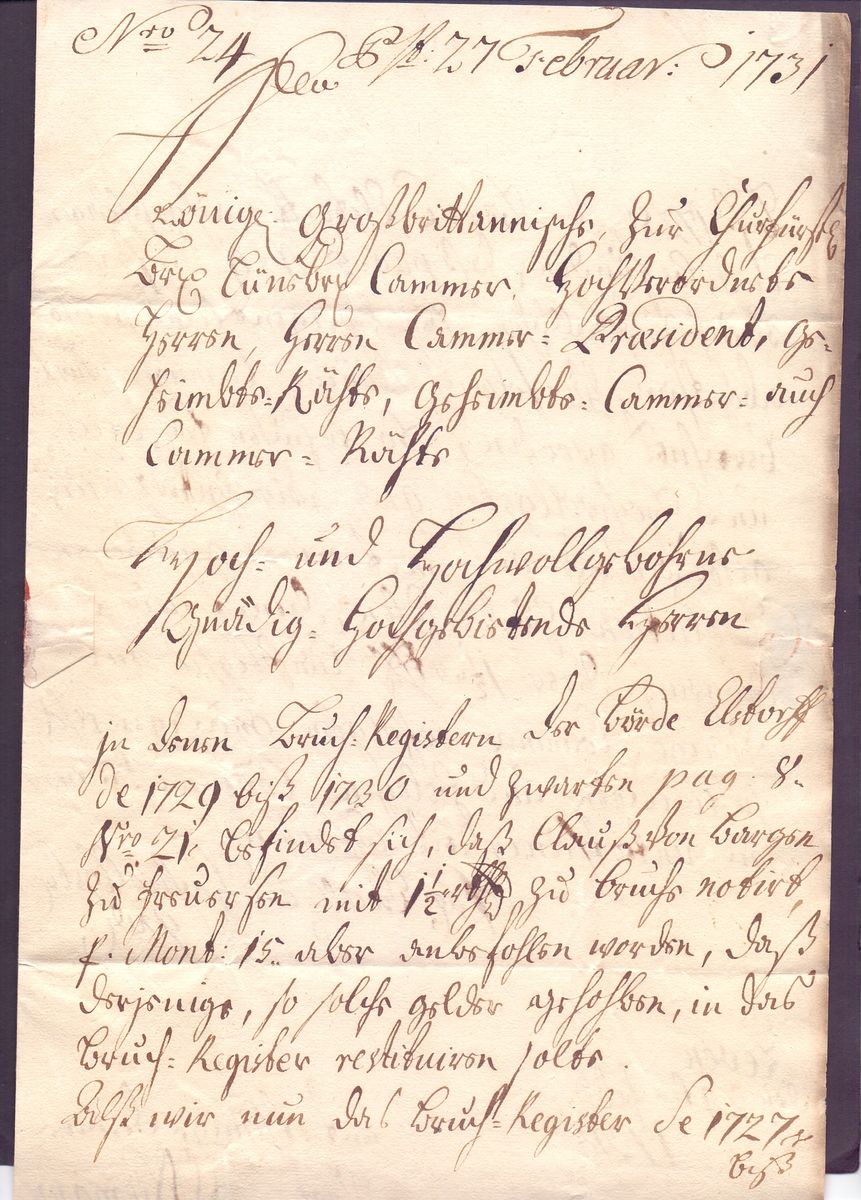 Nro 24
Pst: 27 Februar: 1731
Königl Großbrittannische, zur Churfürstl
Br: Lünebr: Cammer, Hochverordnete
Herren, Herren Cammer-Præsident, Ge-
heimbte-Rähte, Geheimbte-Cammer-auch
Cammer-Rähte
Hoch- und Hochwollgebohrne
Gnädig-Hochgebietende Herren
in denen Bruch-Registern der Börde Elstorff
de 1729 biß 1730 und zwarten pag. 8.
Nro 21. befindet sich, daß Clauß von Bargen
zu mit 1 1/2 rthl zu bruche notirt,
p. Mont: 15. aber anbefohlen worden, daß
derjenige, so solche gelder gehohben, in das
Bruch-Register restituiren solte.
Alß wir nun das Bruch-Register de 1727
biß